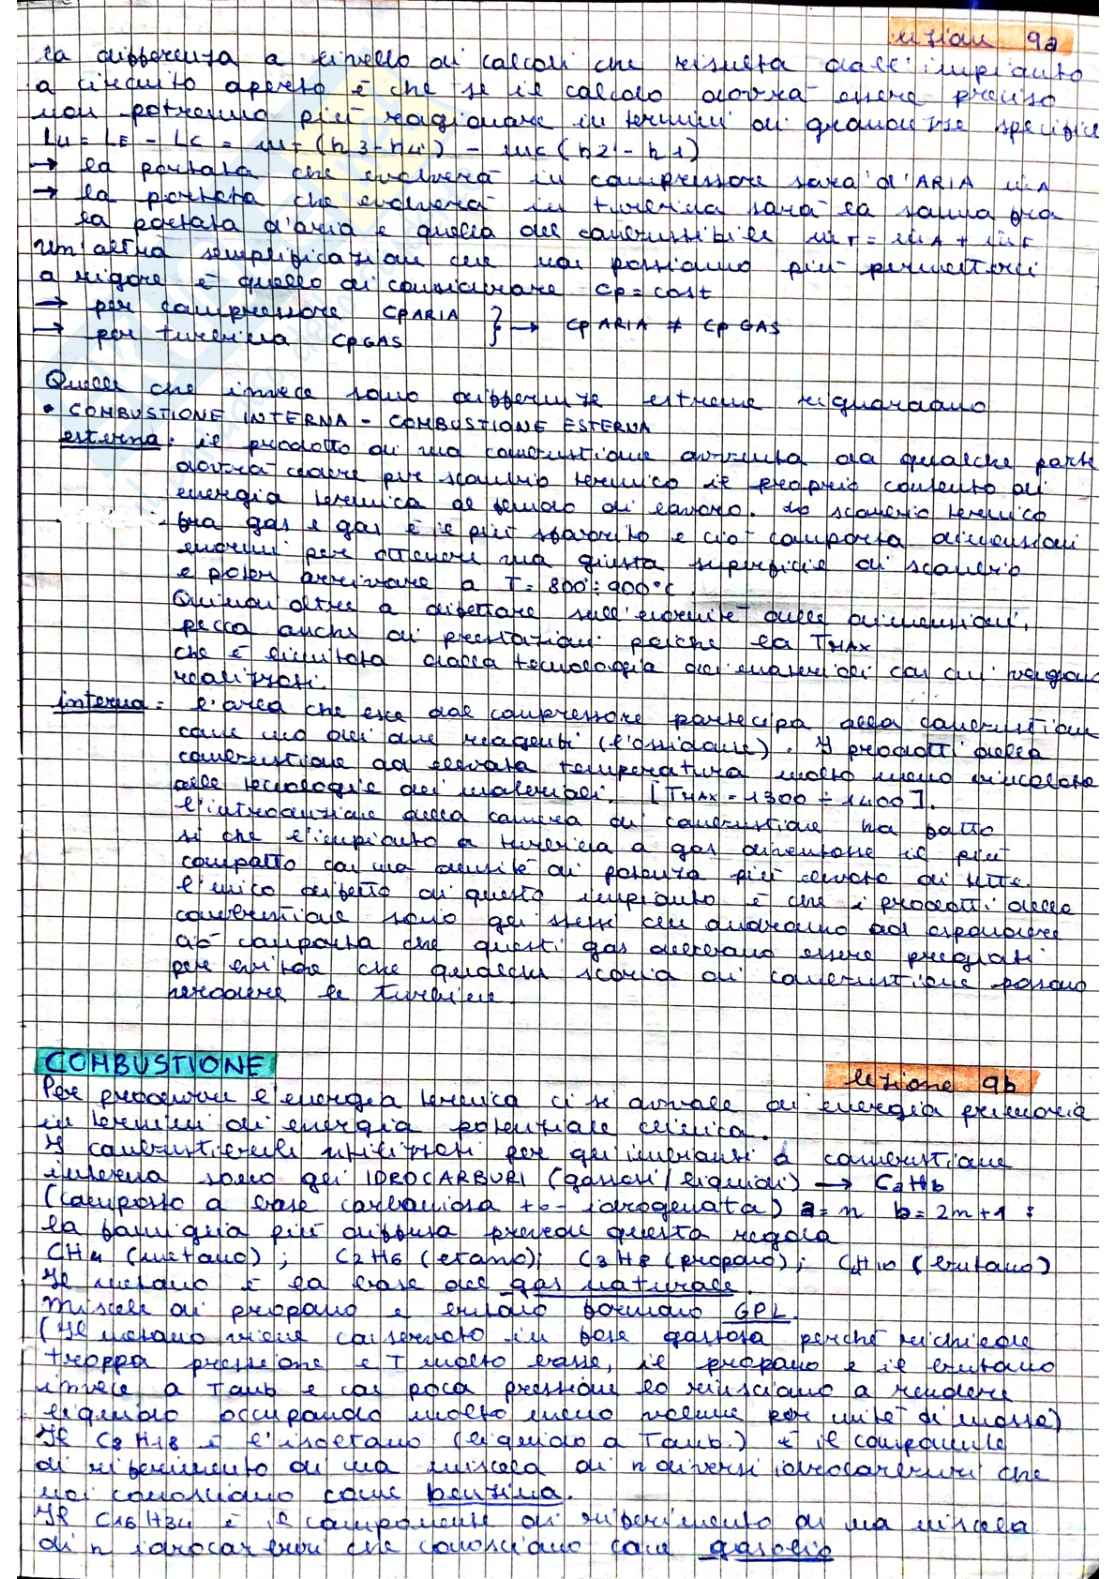 lezione 9a
la differenza a livello di calcoli che risulta dall'impianto
a circuito aperto è che se il calcolo dovrà essere preciso
non potremmo più ragionare in termini di grandezze specifiche
Lu = LE - LC = ṁT (h3-h4') - ṁC (h2'-h1)
→ la portata che evolverà in compressore sarà d'ARIA ṁA
→ la portata che evolverà in turbina sarà la somma fra
la portata d'aria e quella del combustibile ṁT = ṁA + ṁF
Un'altra semplificazione che non possiamo più permetterci
a rigore è quello di considerare cp = cost
→ per compressore CPARIA
→ per turbina CPGAS } → CP ARIA ≠ CP GAS
Quelle che invece sono differenze estreme riguardano
• COMBUSTIONE INTERNA - COMBUSTIONE ESTERNA
esterna: il prodotto di una combustione avvenuta da qualche parte
dovrà cedere per scambio termico il proprio contenuto di
energia termica al fluido di lavoro. Lo scambio termico
fra gas e gas è il più sfavorito e ciò comporta dimensioni
enormi per ottenere una giusta superficie di scambio
e poter arrivare a T = 800÷900°C.
Quindi oltre a difettare sull'enormità delle dimensioni,
pecca anche di prestazioni perché la TMAX
che è limitata dalla tecnologia dei materiali con cui vengono
realizzati.
interna: l'area che esce dal compressore partecipa alla combustione
come uno dei due reagenti (l'ossidante). I prodotti della
combustione ad elevata temperatura molto meno vincolata
alle tecnologie dei materiali. [TMAX = 1300 ÷ 1400].
L'introduzione della camera di combustione ha fatto
sì che l'impianto a turbina a gas diventasse il più
compatto con una densità di potenza più elevata di tutte.
L'unico difetto di questo impianto è che i prodotti della
combustione sono gli stessi che andranno ad espandere
ciò comporta che questi gas dovranno essere pregiati
per evitare che qualche scoria di combustione possano
ledere le turbine
COMBUSTIONE
lezione 9b
Per produrre l'energia termica ci si avvale di energia primaria
in termini di energia potenziale chimica.
I combustibili utilizzati per gli impianti a combustione
interna sono gli IDROCARBURI (gassosi/liquidi) → CaHb
(composto a base carboniosa + o - idrogenata) a = n b = 2m+1 :
la famiglia più diffusa prevede questa regola
CH4 (metano) ; C2H6 (etano); C3H8 (propano); C4H10 (butano)
Il metano è la base del gas naturale.
Miscele di propano e butano formano GPL.
(Il metano viene conservato in fase gassosa perché richiede
troppa pressione e T molto basse, il propano e il butano
invece a Tamb e con poca pressione lo riusciamo a rendere
liquido occupando molto meno volume per unità di massa)
Il C8 H18 è l'isoetano (liquido a Tamb.) è il componente
di riferimento di una miscela di n diversi idrocarburi che
noi conosciamo come benzina.
Il C16 H34 è il componente di riferimento di una miscela
di n idrocarburi che conosciamo come gasolio